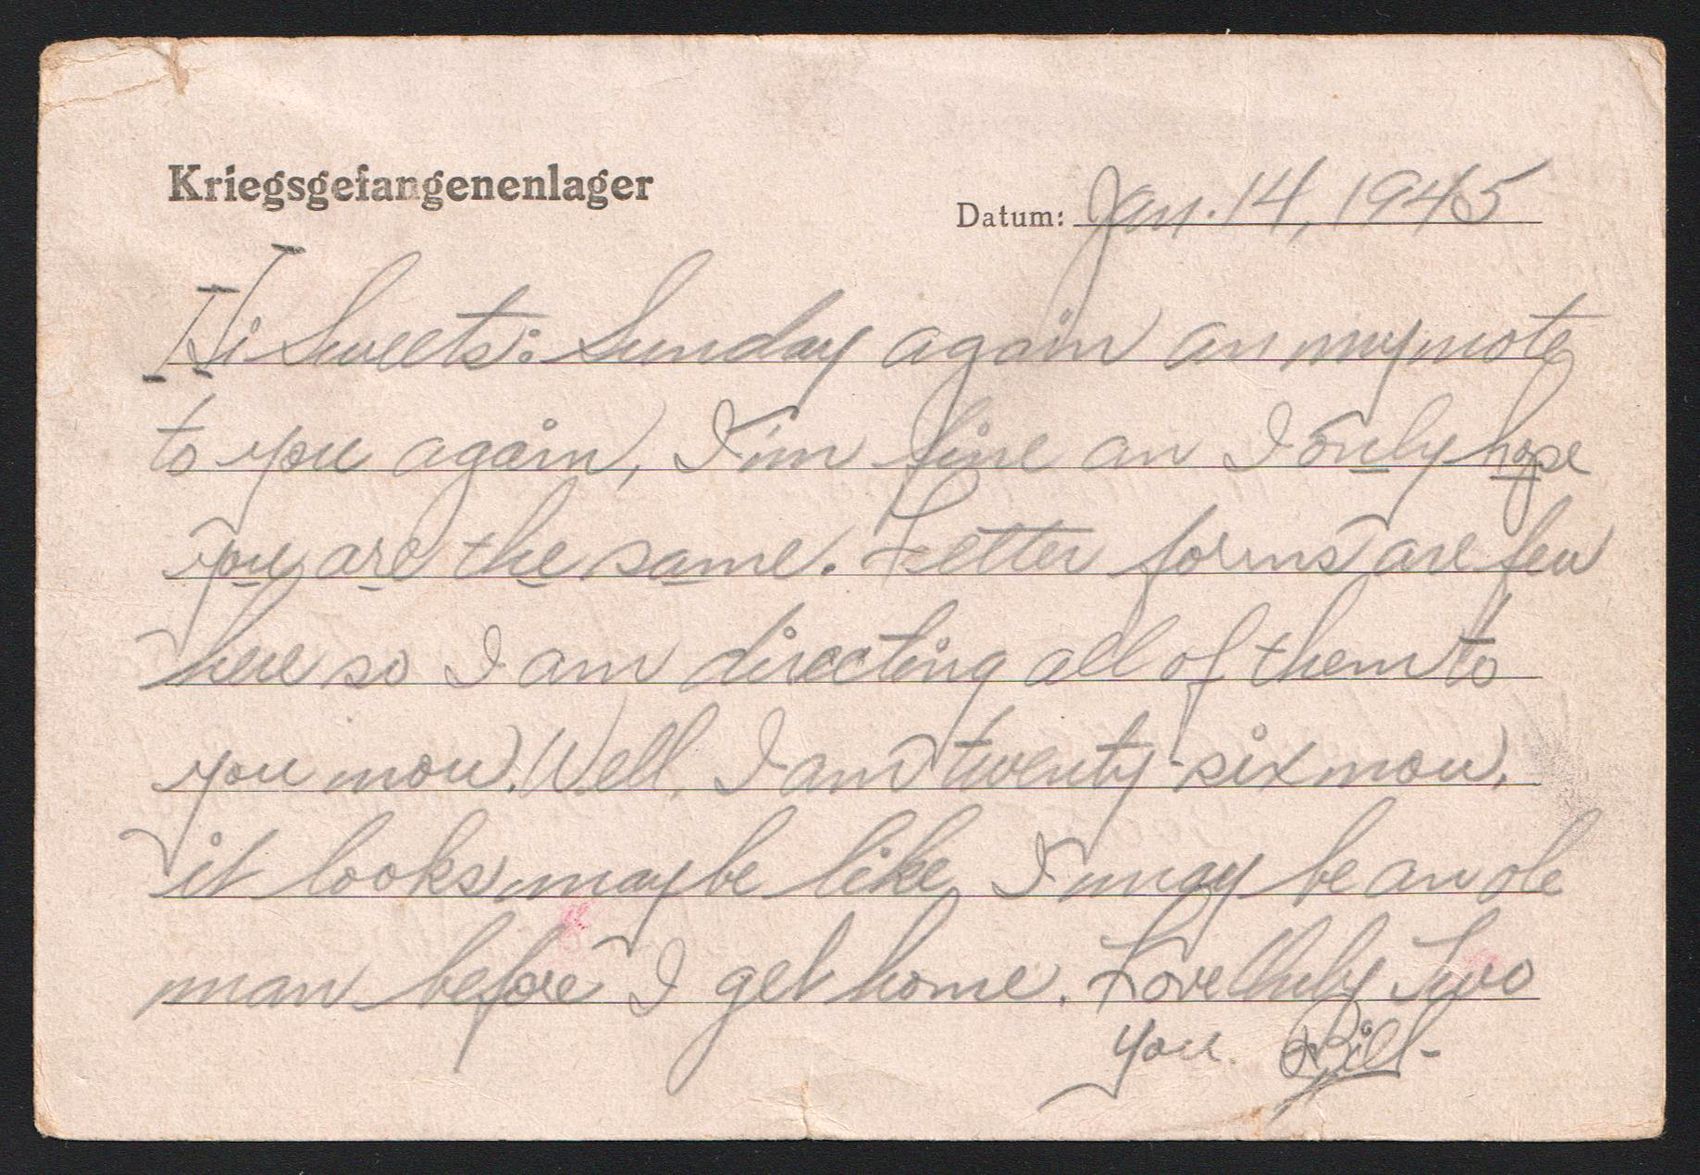 Kriegsgefangenenlager
Datum: Jan. 14, 1945
Hi Sweets: Sunday again an my note
to you again, I'm fine an I only hope
you are the same. Letter forms are few
here so I am directing all of them to
you now. Well, I am twenty-six now,
it looks maybe like I may be an ole
man before I get home. Love Two
you. Bill-